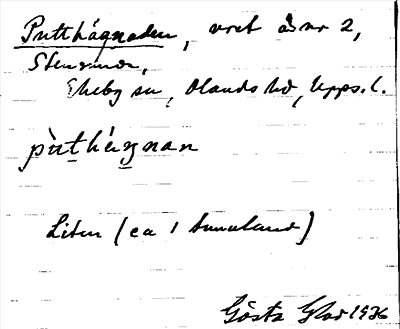 Putthágnaden, vret å nr 2,
Stensunda,
Ekeby sn, Olands hd, Upps. l.
pùthágnan
Liten (ca 1 tunnland)
Gösta Glas 1936